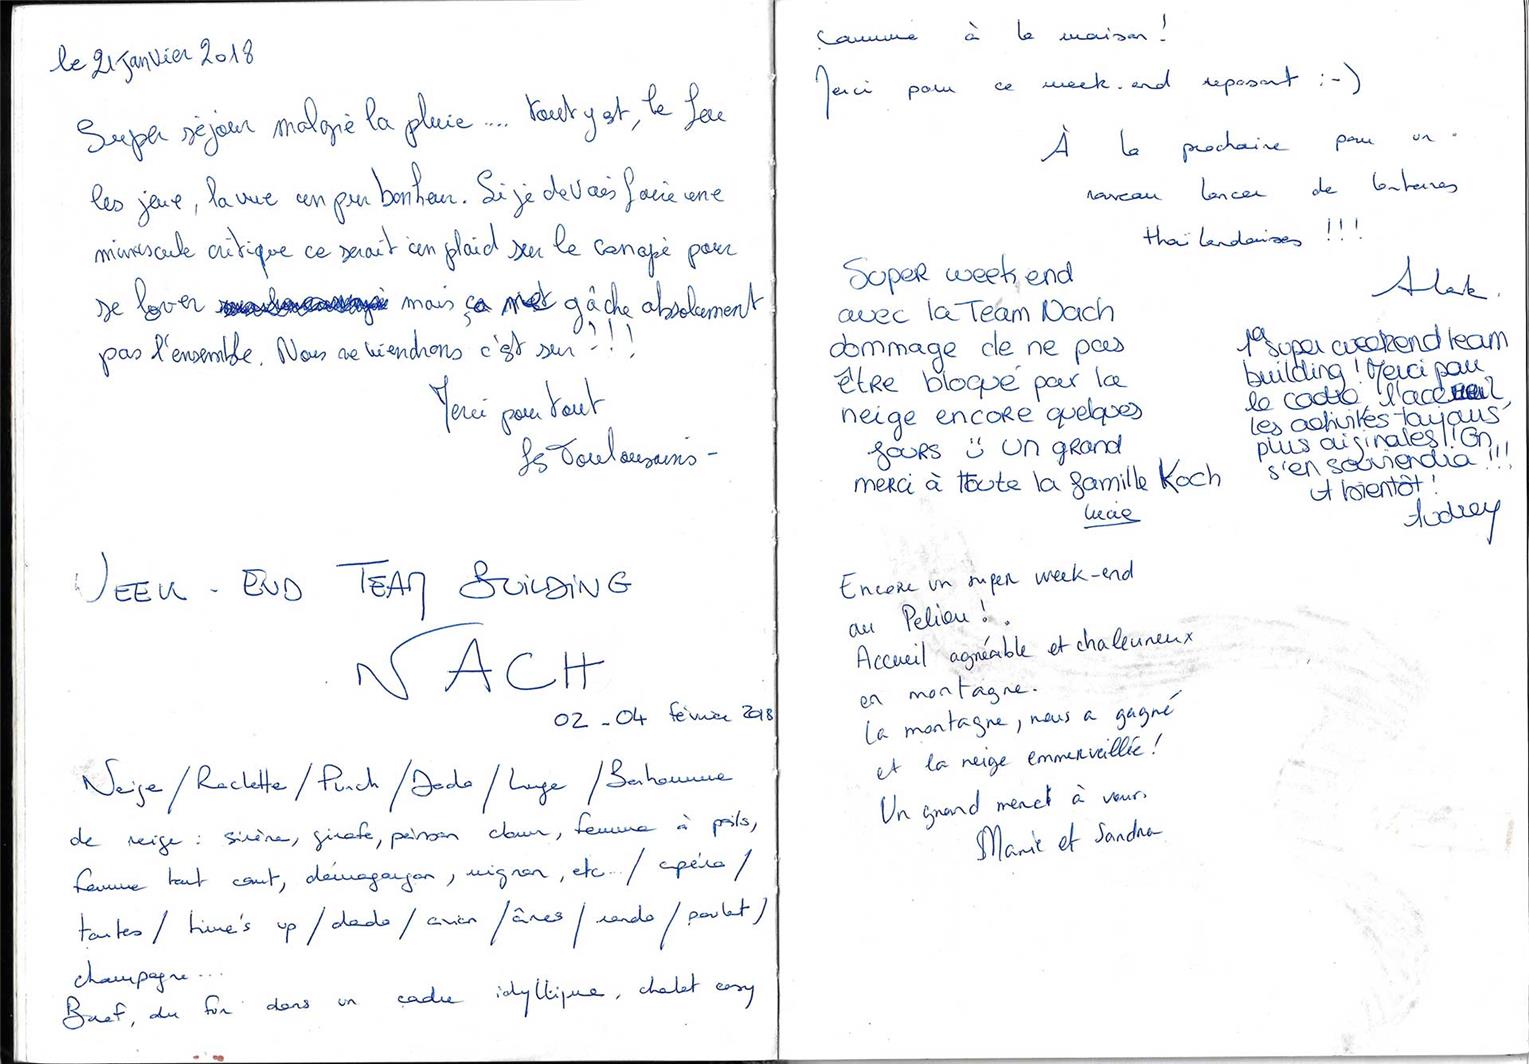 le 21 Janvier 2018
Super séjour malgré la pluie .... tout y est, le feu
les jeux, la vue un pur bonheur. Si je devais faire une
minuscule critique ce serait un plaid sur le canapé pour
se lover mais ça gâche absolument
pas l'ensemble. Nous reviendrons c'est sur !!!
Merci pour tout
Les Toulousains -
WEEK - END TEAM BUILDING
NACH
02 - 04 février 2018
Neige / Raclette / Punch / Dodo / Luge / Bonhomme
de neige : sirène, girafe, poisson clown, femme à poils,
femme tout court, démogorgon, mignon, etc... / apéro /
tartes / time's up / dodo / / ânes / rando / poulet /
champagne ...
Bref, du fun dans un cadre idyllique, chalet cosy
comme à la maison !
Merci pour ce week-end reposant :-)
À la prochaine pour un
nouveau lancer de lanternes
thaïlandaises !!!
Super week end
avec la Team Nach
dommage de ne pas
être bloqué par la
neige encore quelques
jours un grand
merci à toute la famille Koch
Lucie
1er super weekend team
building ! Merci pour
le cadre, l'accueil,
les activités toujours
plus originales ! On
s'en souviendra !!!
A bientôt !
Audrey
Encore un super week-end
au Pelieu !.
Accueil agréable et chaleureux
en montagne.
La montagne, nous a gagné
et la neige emmerveillée !
Un grand merci à vous.
Marie et Sandra